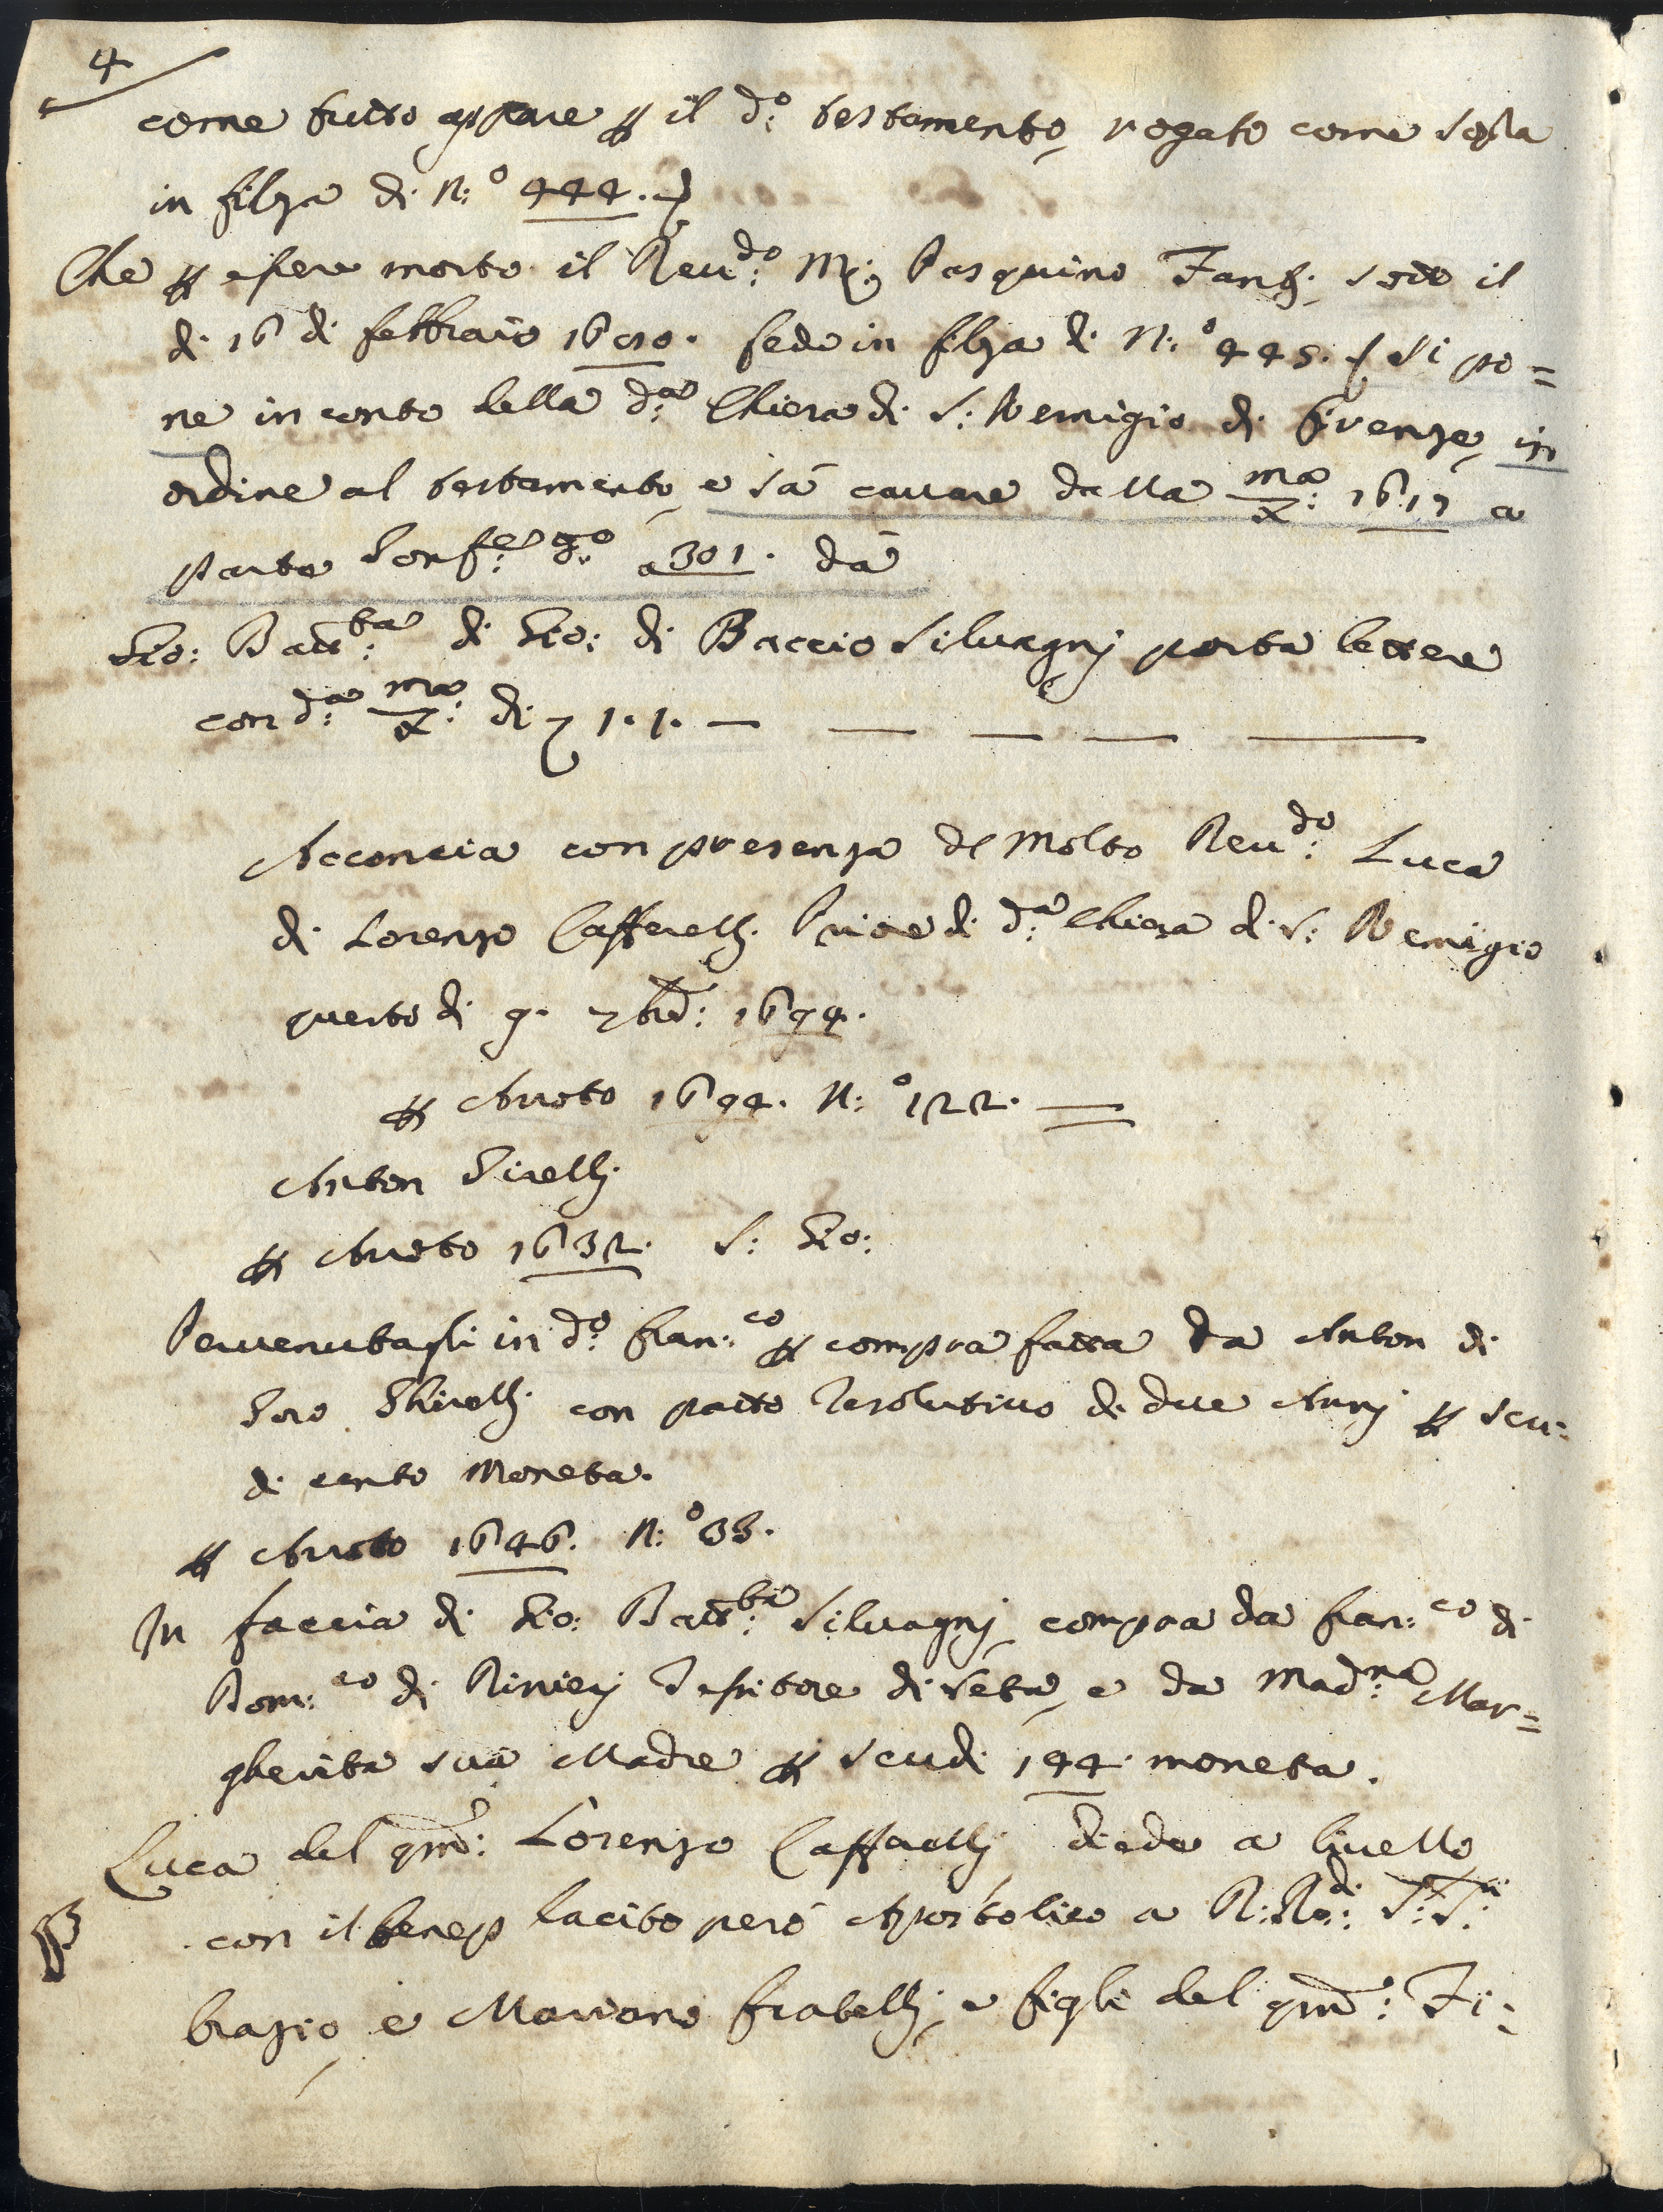 4
come tutto appare ꝑ il d.º testamento, rogato come sop.ª
in filza di N.º 444.
Che ꝑ essere morto il Reu.do M. Pasquino Fanti. sotto il
di 16 di febbraio fede in filza di N.º 445. si po=
ne in conto della d.ª Chiesa di S: Remigio di Firenze, in
ordine al testamento, e sà cauare dalla 1617 a
parte a 301. dà
Gio: Batt.ta di Gio: di Baccio Siluagnj porta lettere
con d.ª di 1.1. — — — — —
Acconcia con presenza del Molto Reu.do Luca
di Lorenzo Caffarelli Priore di d.ª Chiesa di S: Remigio
questo di 9. 7bre: 1694.
ꝑ Aroto 1694. N.º 122. —
Anton Girelli
ꝑ Aroto 1632. S: Gio:
Peruenutagli in d.º Fran.co ꝑ compra fatta da Anton di
Ghirelli con patto resolutiuo di due Annj ꝑ scu=
di cento Moneta.
ꝑ Aroto 1646. N.º 33.
In faccia di Gio: Batt.ta Siluagnj, compra da Fran.co di
Dom.co di Rinierj Tessitore di seta, e da Mad.na Mar=
gherita sua Madre ꝑ scudi 144. moneta.
Luca del qm: Lorenzo Caffarellj diede a liuello
con il beneplacito però Apostolico a R:R.di:
brazio, e Mariano fratelli, e figli del qm: Ti=